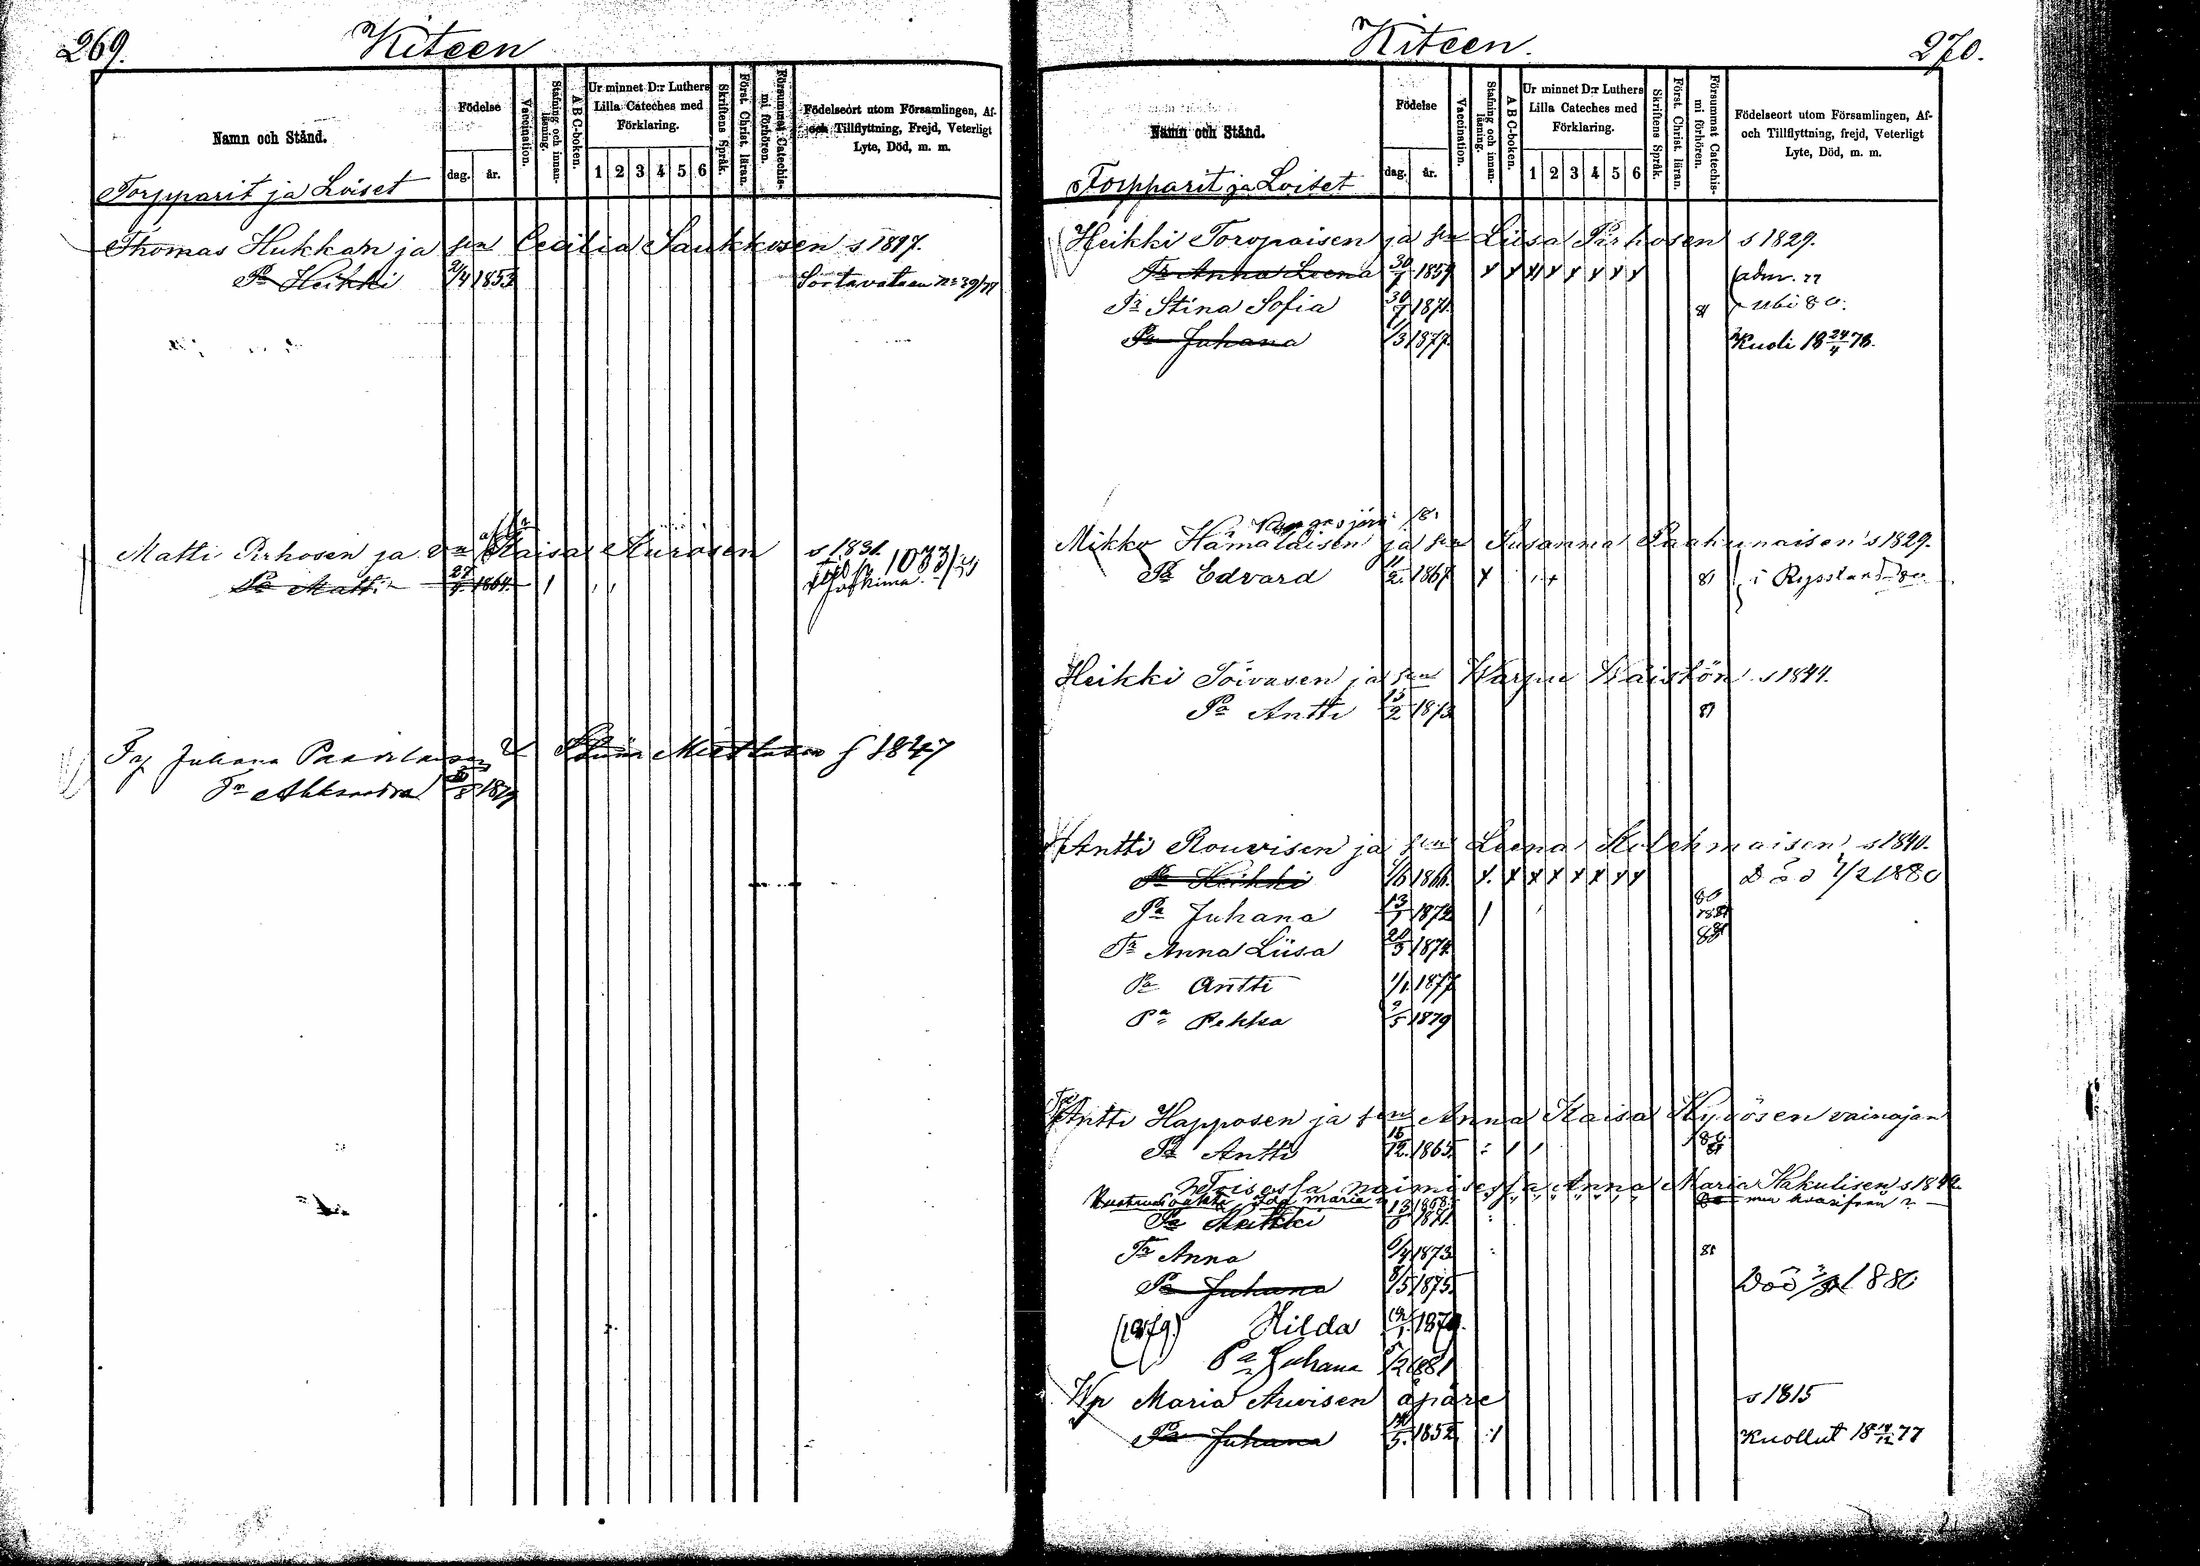 269.
Kiteen
Namn och Stånd.
Födelse
dag.
år.
Vaccination.
Stafning och innan-läsning.
A B C-boken.
Ur minnet D:r Luthers Lilla Cateches med Förklaring.
1 2 3 4 5 6
Skriftens Språk.
Först. Christ. läran.
Försummat Catechis-mi förhören.
Födelseort utom Församlingen, Af- och Tillflyttning, Frejd, Veterligt Lyte, Död, m. m.
Torpparit ja Loiset
Thomas Hukkan ja sen Cecilia Saukkosen s 1817.
Pa Heikki 2/4 1853 Sortavalaan No 39/78
Matti Pirhosen ja vn Kaisa Kurosen s 1831.
Pa Matti 27/4 1864. 1033
Juhana Paavilaisen 1847
Tr Aleksandra 1879
Kiteen.
270.
Namn och Stånd.
Födelse
dag.
år.
Vaccination.
Stafning och innan-läsning.
A B C-boken.
Ur minnet D:r Luthers Lilla Cateches med Förklaring.
1 2 3 4 5 6
Skriftens Språk.
Först. Christ. läran.
Försummat Catechis-mi förhören.
Födelseort utom Församlingen, Af- och Tillflyttning, frejd, Veterligt Lyte, Död, m. m.
Torpparit ja Loiset
Heikki Toropaisen ja sen Liisa Pirhosen s 1829.
Tr Anna Leena 1859 x x x x x x x x adm. 77
Tr Stina Sofia 30/7 1871. 81 ubi 80.
Pa Juhana 1/3 1877. Kuoli 18 24/4 78.
Mikko Hämäläisen ja sen Susanna Paakunaisen s 1829.
Pa Edvard 1867 x 81 i Ryssland 80
Heikki Toivasen ja sen Warpu Waistön s 1841.
Pa Antti 15/2 1873 81
Antti Rouvisen ja sen Leena Kolehmaisen s 1840.
Pa Heikki 1866. x. x x x x x x x Död 1/2 1880
Pa Juhana 13/1 1872 80
Tr Anna Liisa 20/5 1874
Pa Antti 1/1 1877
Pa Pekka 9/5 1879
Antti Happosen ja sen Anna Kaisa Hyvösen vainajan
Pa Antti 15/12. 1865.
Toisessa naimisessa Anna Maria Kakulisen
Pa Heikki 1871.
Tr Anna 6/4 1873 81
Pa Juhana 8/5 1875. Död 1880
(1879.) Hilda 1879.
Pa Juhana 5/2 1881
Wp Maria Auvisen äpäre s 1815
Pa Juhana 1852 Kuollut 18 77